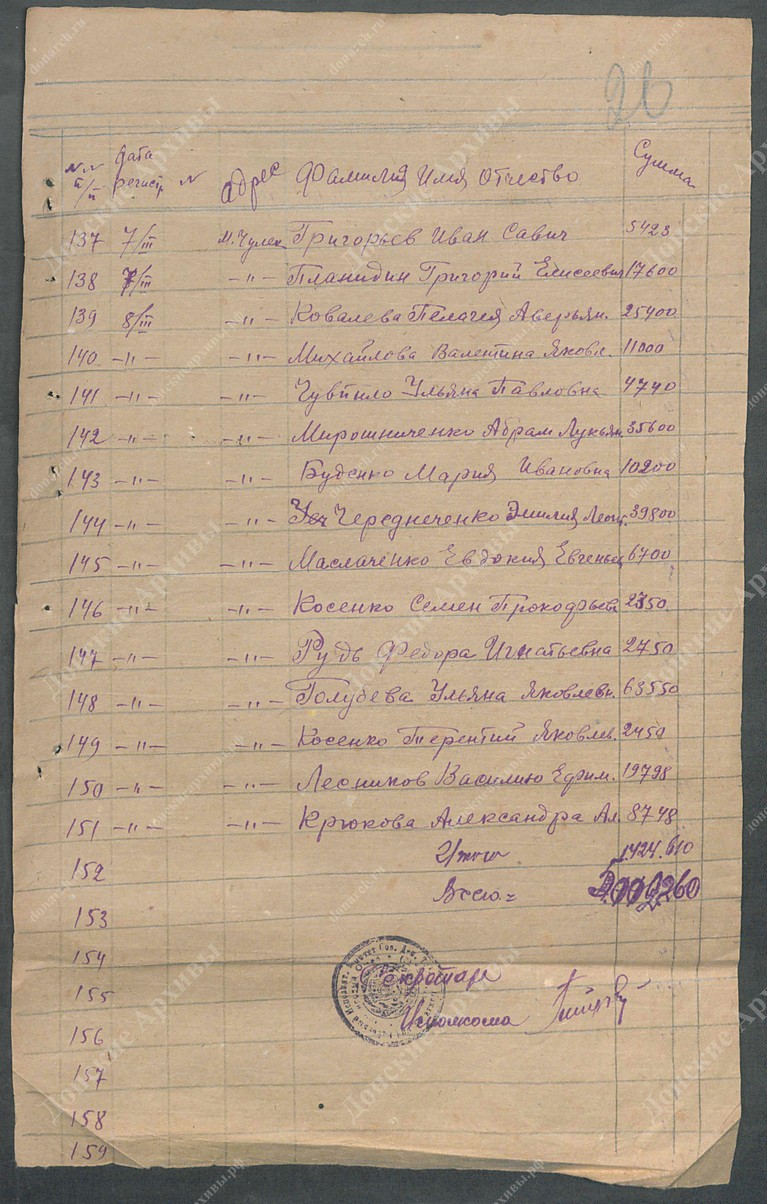 26
№№ п/п Дата регистр № Адрес Фамилия Имя Отчество Сумма
137 7/III М. Чулек Григорьев Иван Савич 5423
138 7/III -"- Планидин Григорий Елисеевич 17600
139 8/III -"- Ковалева Пелагея Аверьян. 25400
140 -"- -"- Михайлова Валентина Яковл. 11000
141 -"- -"- Чувпило Ульяна Павловна 4740
142 -"- -"- Мирошниченко Абрам Лукьян. 35600
143 -"- -"- Буденко Мария Ивановна 10200
144 -"- -"- Чередниченко Эмилия 39800
145 -"- -"- Маслаченко Евдокия Евгеньев 6700
146 -"- -"- Косенко Семен Прокофьев
147 -"- -"- Рудь Федора Игнатьевна 2750
148 -"- -"- Голубева Ульяна Яковлевн. 63550
149 -"- -"- Косенко Терентий Яковлев. 2450
150 -"- -"- Лесников Василию Ефим. 19798
151 -"- -"- Крюкова Александра Ал. 8748
152 Итого 1.424.610
Всего =
153
154
Секретарь
155
Исполкома
156
157
158
159